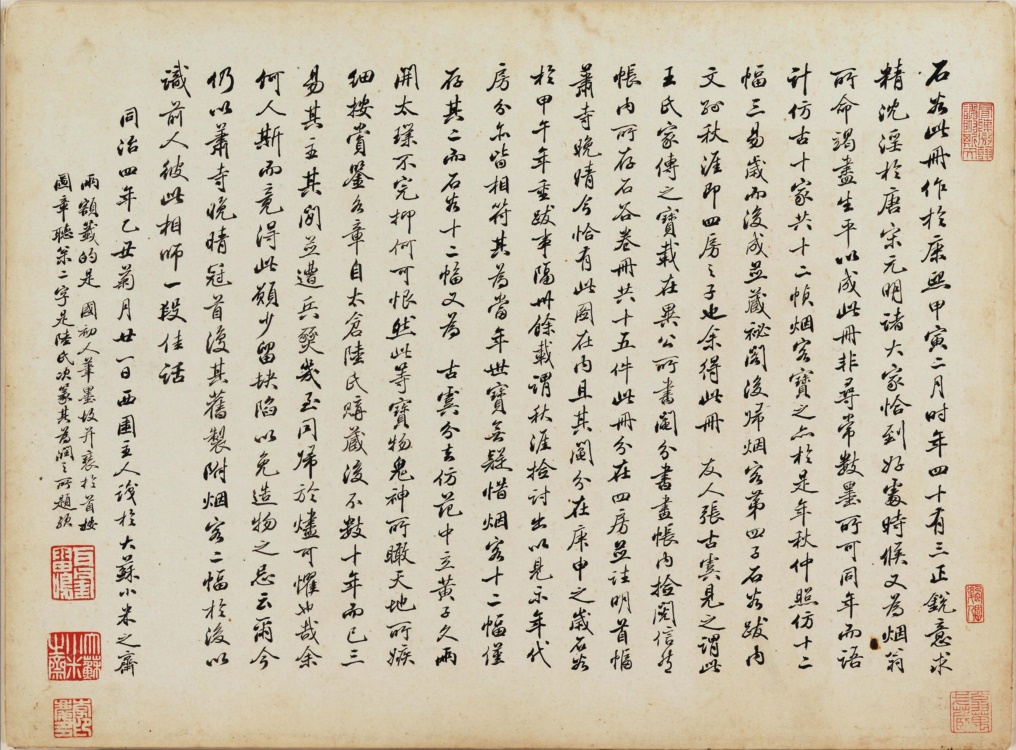 石谷此冊作於康熙甲寅二月时年四十有三正銳意求
精沈淫於唐宋元明諸大家恰到好處時候又為烟翁
所命竭盡生平以成此冊非尋常数墨所可同年而語
計仿古十家共十二幀烟客寶之亦於是年秋仲照仿十二
幅三易歲而後成並蔵祕閣後歸烟客第四子石谷跋内
文孙秋涯即四房之子也余得此冊 友人張古虞見之謂此
王氏家傳之寳載在異公所書鬮分書畫帳内撿閱信然
帳内所存石谷卷冊共十五件此冊分在四房並註明首幅
蕭寺晚晴今恰有此圖在内且其鬮分在庚申之歲石谷
於甲午年重跋事隔卅餘載謂秋涯拾討出以見示年代
房分亦皆相符其為當年世寶無疑惜烟客十二幅僅
存其二而石谷十二幅又為 古虞分去仿范中立黄子久兩
開太璞不完抑何可恨然此等寶物鬼神所瞰天地所嫉
細按賞鑒各章自太倉陸氏購蔵後不数十年而已三
易其主其間並遭兵燹幾至同歸於燼可懼也哉余
何人斯而竟得此願少留缺陷以免造物之忌云爾今
仍以蕭寺晚晴冠首復其舊製附烟客二幅於後以
識前人彼此相師一段佳話
同治四年乙丑菊月廿一日西圃主人識於大蘇小米之齋
兩額籤的是 國初人筆墨故并裱於首按
圖章聽松二字是陸氏次篆其為潤之所題頭